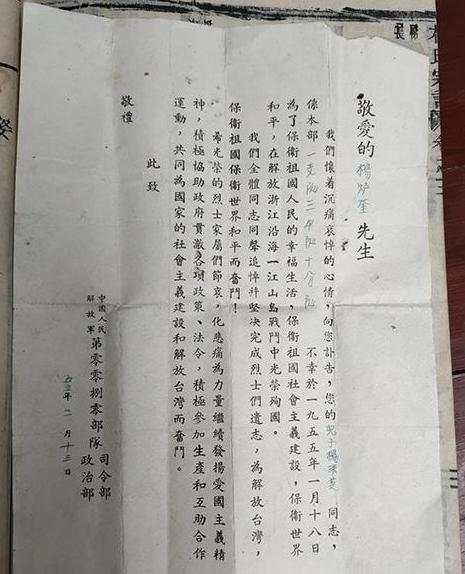 敬愛的楊先生
我們懷着沉痛哀悼的心情，向您訃告，您的兒子楊同志，
係本部一支隊三中隊十分隊 不幸於一九五五年一月十八日
為了保衛祖國人民的幸福生活，保衛祖國社會主義建設，保衛世界
和平，在解放浙江沿海一江山島戰鬥中光榮殉國。
我們全體同志同聲追悼并堅决完成烈士們遺志，為解放台灣，
保衛祖國保衛世界和平而奮鬥！
希光榮的烈士家屬們節哀，化悲痛為力量繼續發揚愛國主義精
神，積極協助政府貫澈各項政策、法令，積極參加生產和互助合作
運動，共同為國家的社會主義建設和解放台灣而奮鬥。
此致
敬禮
中國人民
解放軍
第零零捌零部隊
司令部
政治部
五五年二月十三日